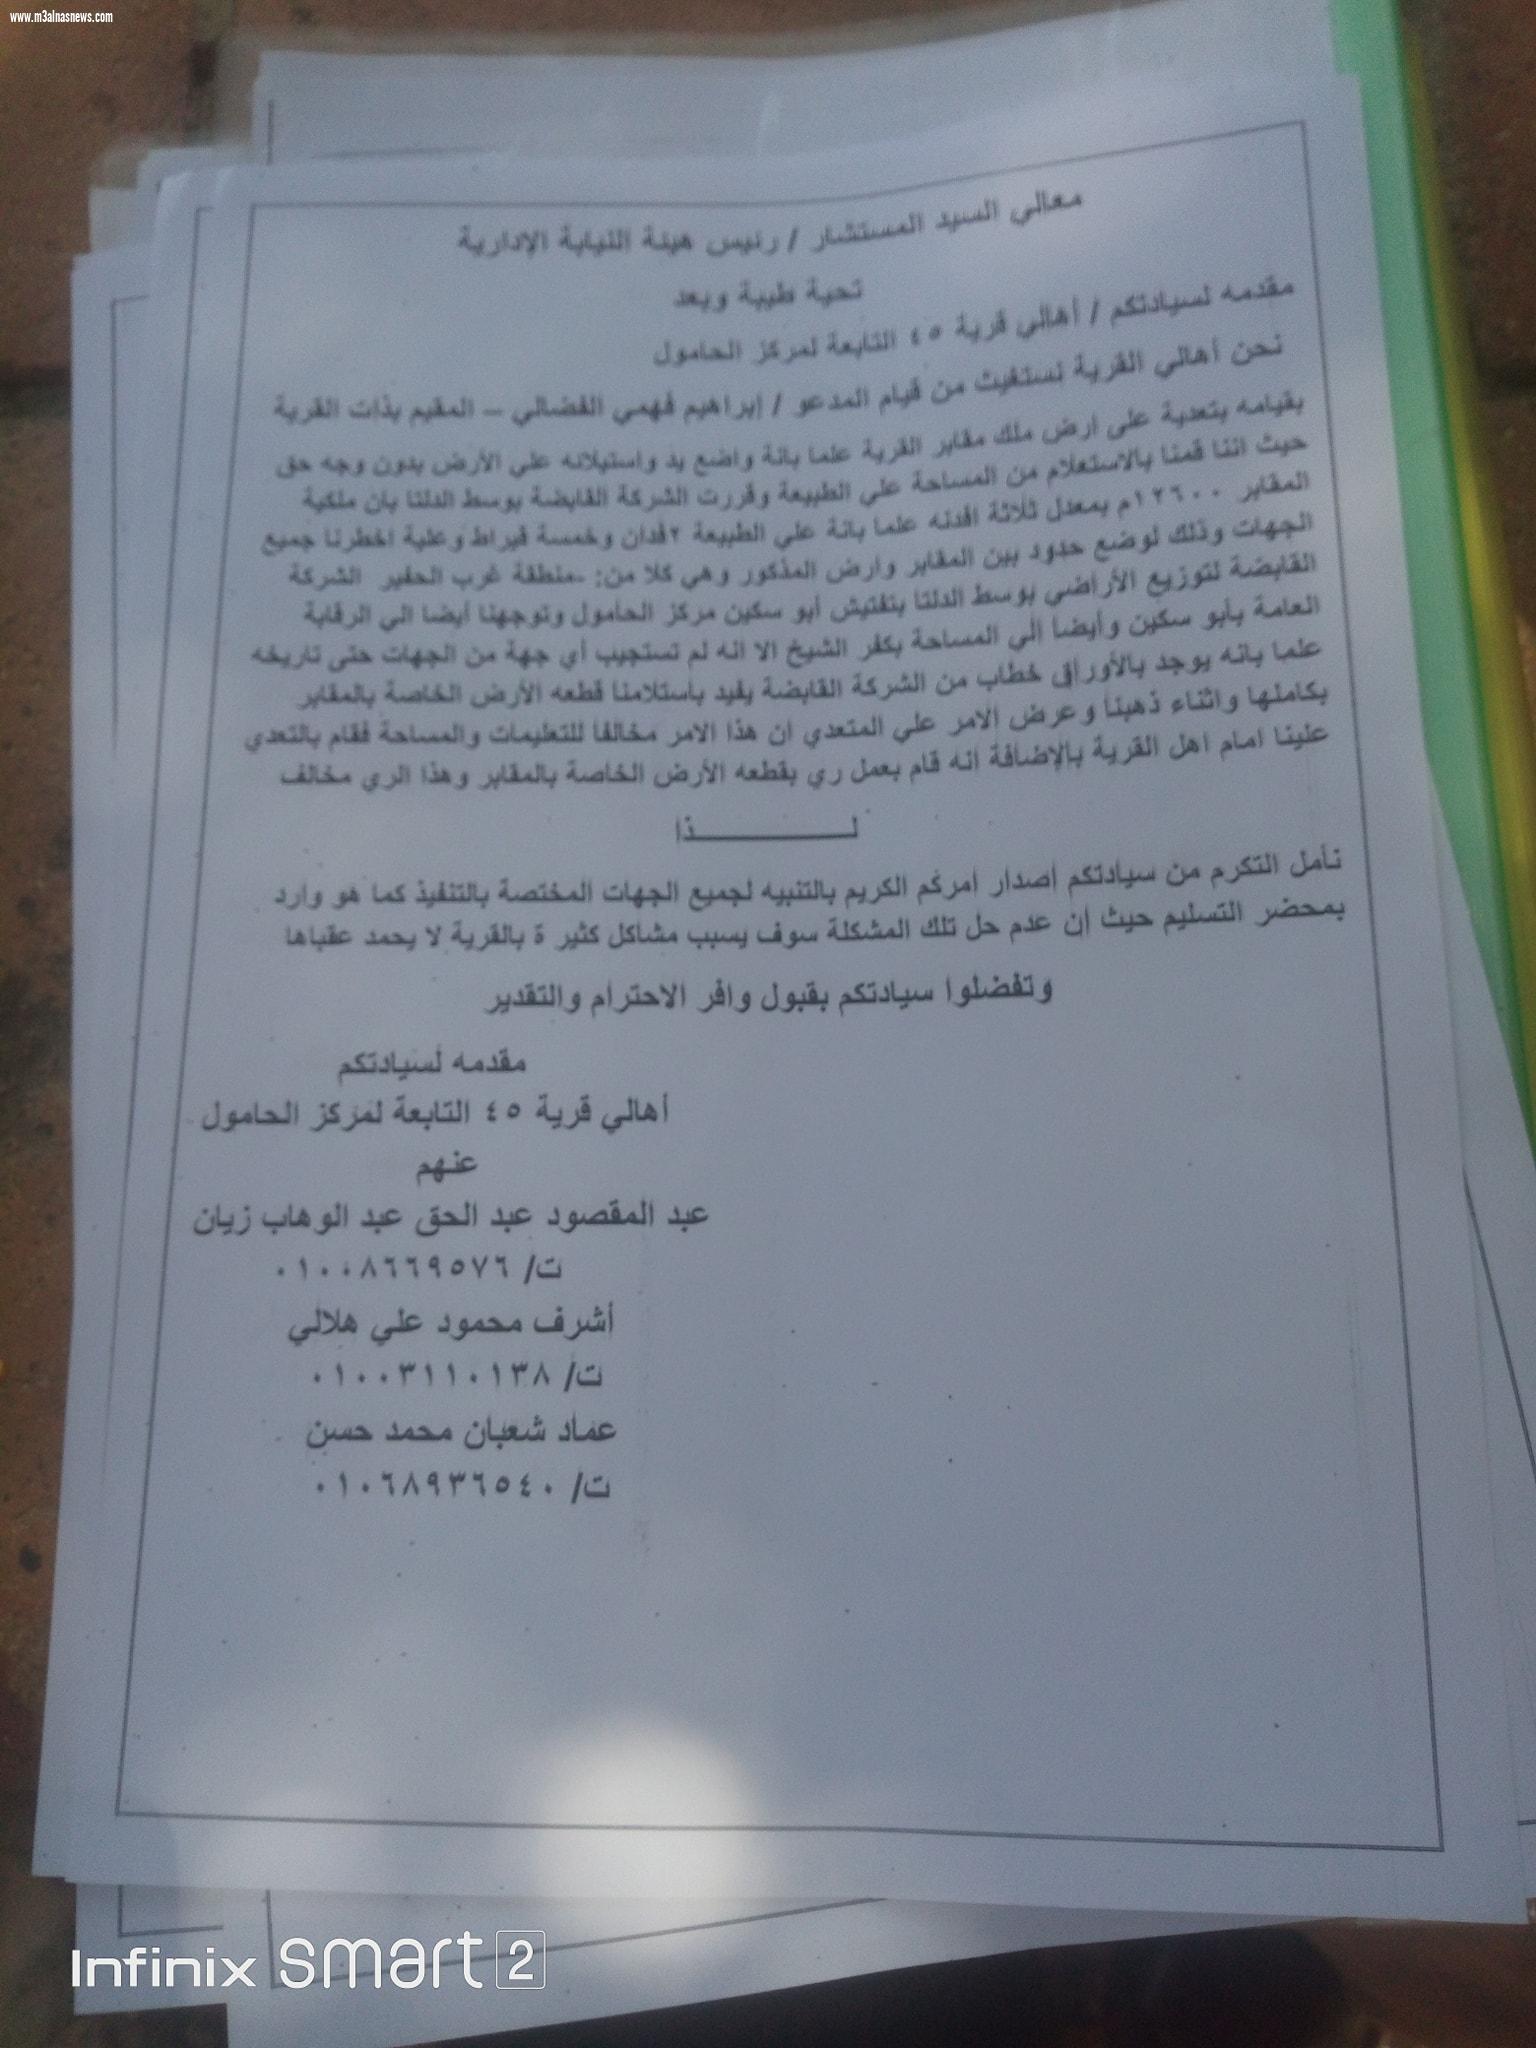 www.m3alnasnews.com
معالي السيد المستشار / رئيس هيئة النيابة الإدارية
تحية طيبة وبعد
مقدمه لسيادتكم / أهالي قرية ٤٥ التابعة لمركز الحامول
نحن أهالي القرية نستغيث من قيام المدعو / إبراهيم فهمي الفضالي – المقيم بذات القرية
بقيامه بتعدية على ارض ملك مقابر القرية علما بانة واضع يد واستيلائه علي الأرض بدون وجه حق
حيث اننا قمنا بالاستعلام من المساحة علي الطبيعة وقررت الشركة القابضة بوسط الدلتا بان ملكية
المقابر ١٢٦٠٠م بمعدل ثلاثة افدنه علما بانة علي الطبيعة ٢فدان وخمسة قيراط وعلية اخطرنا جميع
الجهات وذلك لوضع حدود بين المقابر وارض المذكور وهي كلا من: -منطقة غرب الحفير الشركة
القابضة لتوزيع الأراضي بوسط الدلتا بتفتيش أبو سكين مركز الحامول وتوجهنا أيضا الي الرقابة
العامة بأبو سكين وأيضا الي المساحة بكفر الشيخ الا انه لم تستجيب أي جهة من الجهات حتى تاريخه
علما بانه يوجد بالأوراق خطاب من الشركة القابضة يفيد باستلامنا قطعه الأرض الخاصة بالمقابر
بكاملها واثناء ذهبنا وعرض الامر علي المتعدي ان هذا الامر مخالفا للتعليمات والمساحة فقام بالتعدي
علينا امام اهل القرية بالإضافة انه قام بعمل ري بقطعه الأرض الخاصة بالمقابر وهذا الري مخالف
لــــــــــــذا
نأمل التكرم من سيادتكم اصدار امركم الكريم بالتنبيه لجميع الجهات المختصة بالتنفيذ كما هو وارد
بمحضر التسليم حيث إن عدم حل تلك المشكلة سوف يسبب مشاكل كثير ة بالقرية لا يحمد عقباها
وتفضلوا سيادتكم بقبول وافر الاحترام والتقدير
مقدمه لسيادتكم
أهالي قرية ٤٥ التابعة لمركز الحامول
عنهم
عبد المقصود عبد الحق عبد الوهاب زيان
ت/ ٠١٠٠٨٦٦٩٥٧٦
أشرف محمود علي هلالي
ت/ ٠١٠٠٣١١٠١٣٨
عماد شعبان محمد حسن
ت/ ٠١٠٦٨٩٣٦٥٤٠
Infinix smart 2